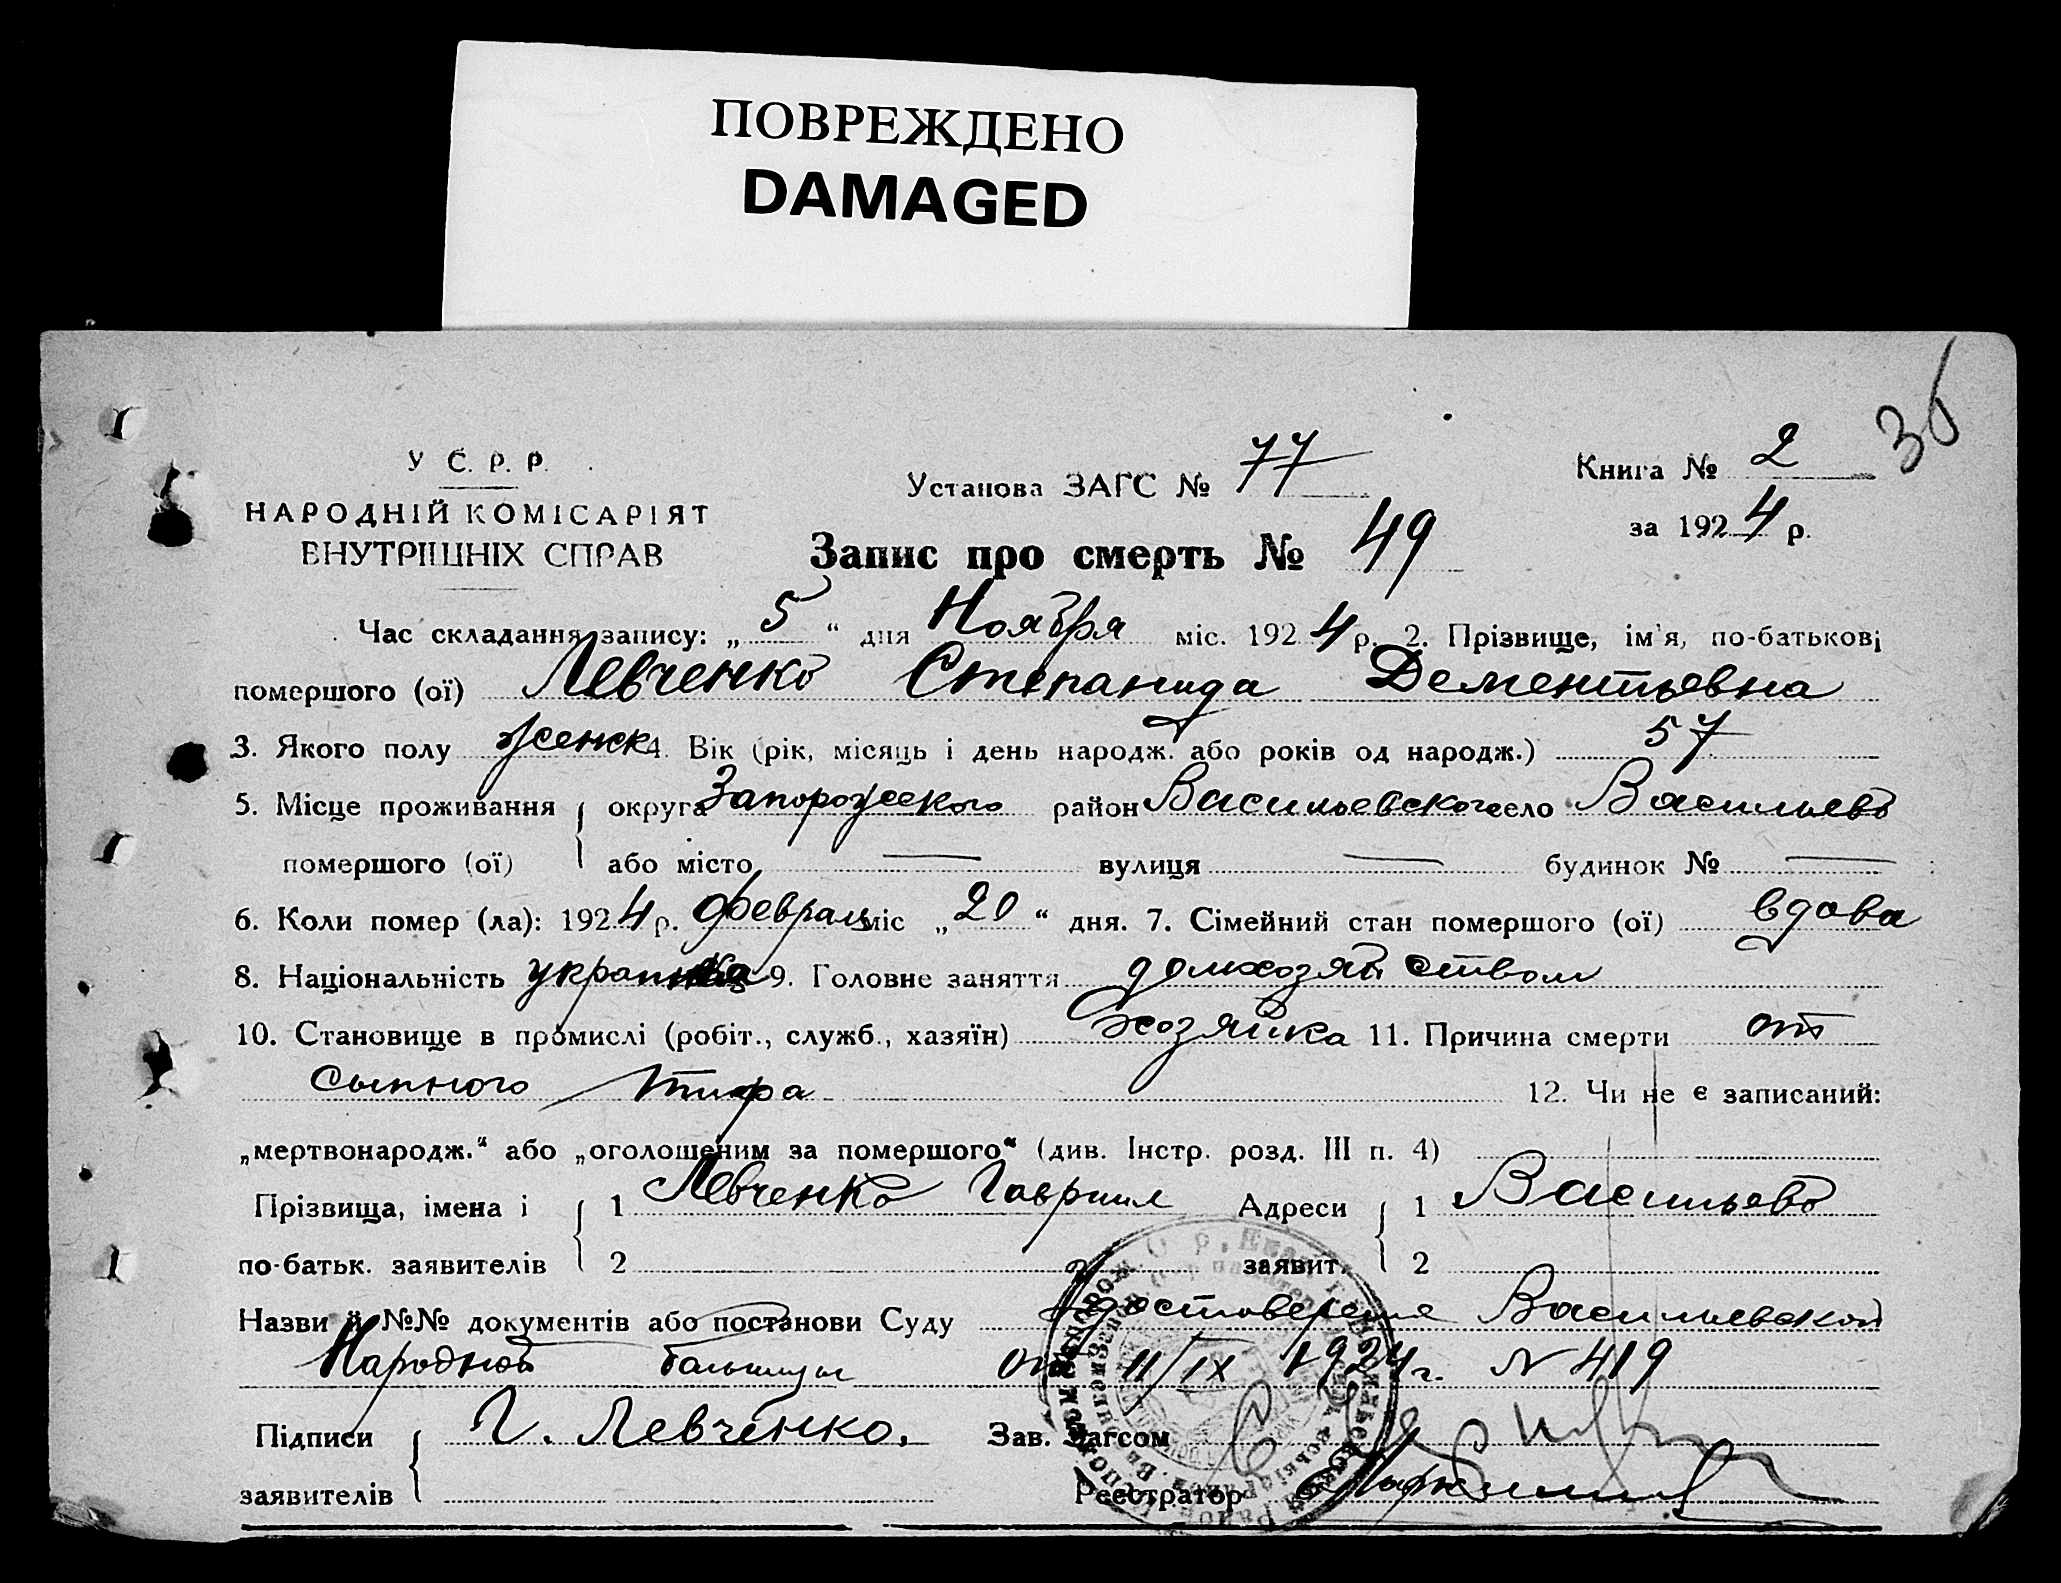 ПОВРЕЖДЕНО
DAMAGED
36
У С. Р. Р.
НАРОДНІЙ КОМІСАРІЯТ
ВНУТРІШНІХ СПРАВ
Установа ЗАГС № 77
Книга № 2
за 1924 р.
Запис про смерть № 49
Час складання запису: „ 5 “ дня Ноября міс. 1924 р. 2. Прізвище, ім'я, по-батькові
помершого (ої) Левченко Степанида Дементьевна
3. Якого полу женск 4. Вік (рік, місяць і день народж. або років од народж.) 57
5. Місце проживання округа Запорожского район Васильевского село Васильевò
помершого (ої) або місто — вулиця — будинок № —
6. Коли помер (ла): 1924 р. Феврал міс „ 20 “ дня. 7. Сімейний стан помершого (ої) вдова
8. Національність украинка 9. Головне заняття домхозяйством
10. Становище в промислі (робіт., служб., хазяїн) Хозяйка 11. Причина смерти от
сыпного тифа 12. Чи не є записаний:
„мертвонародж.“ або „оголошеним за помершого“ (див. Інстр. розд. III п. 4)
Прізвища, імена і 1 Левченко Гавриил Адреси 1 Васильевò
по-батьк. заявителів 2 заявит. 2
Назви й №№ документів або постанови Суду Удостоверение Васильевской
Народной больницы от 11/IX 1924 г. N 419
Підписи Г. Левченко. Зав. Загсом
заявителів Реєстратор